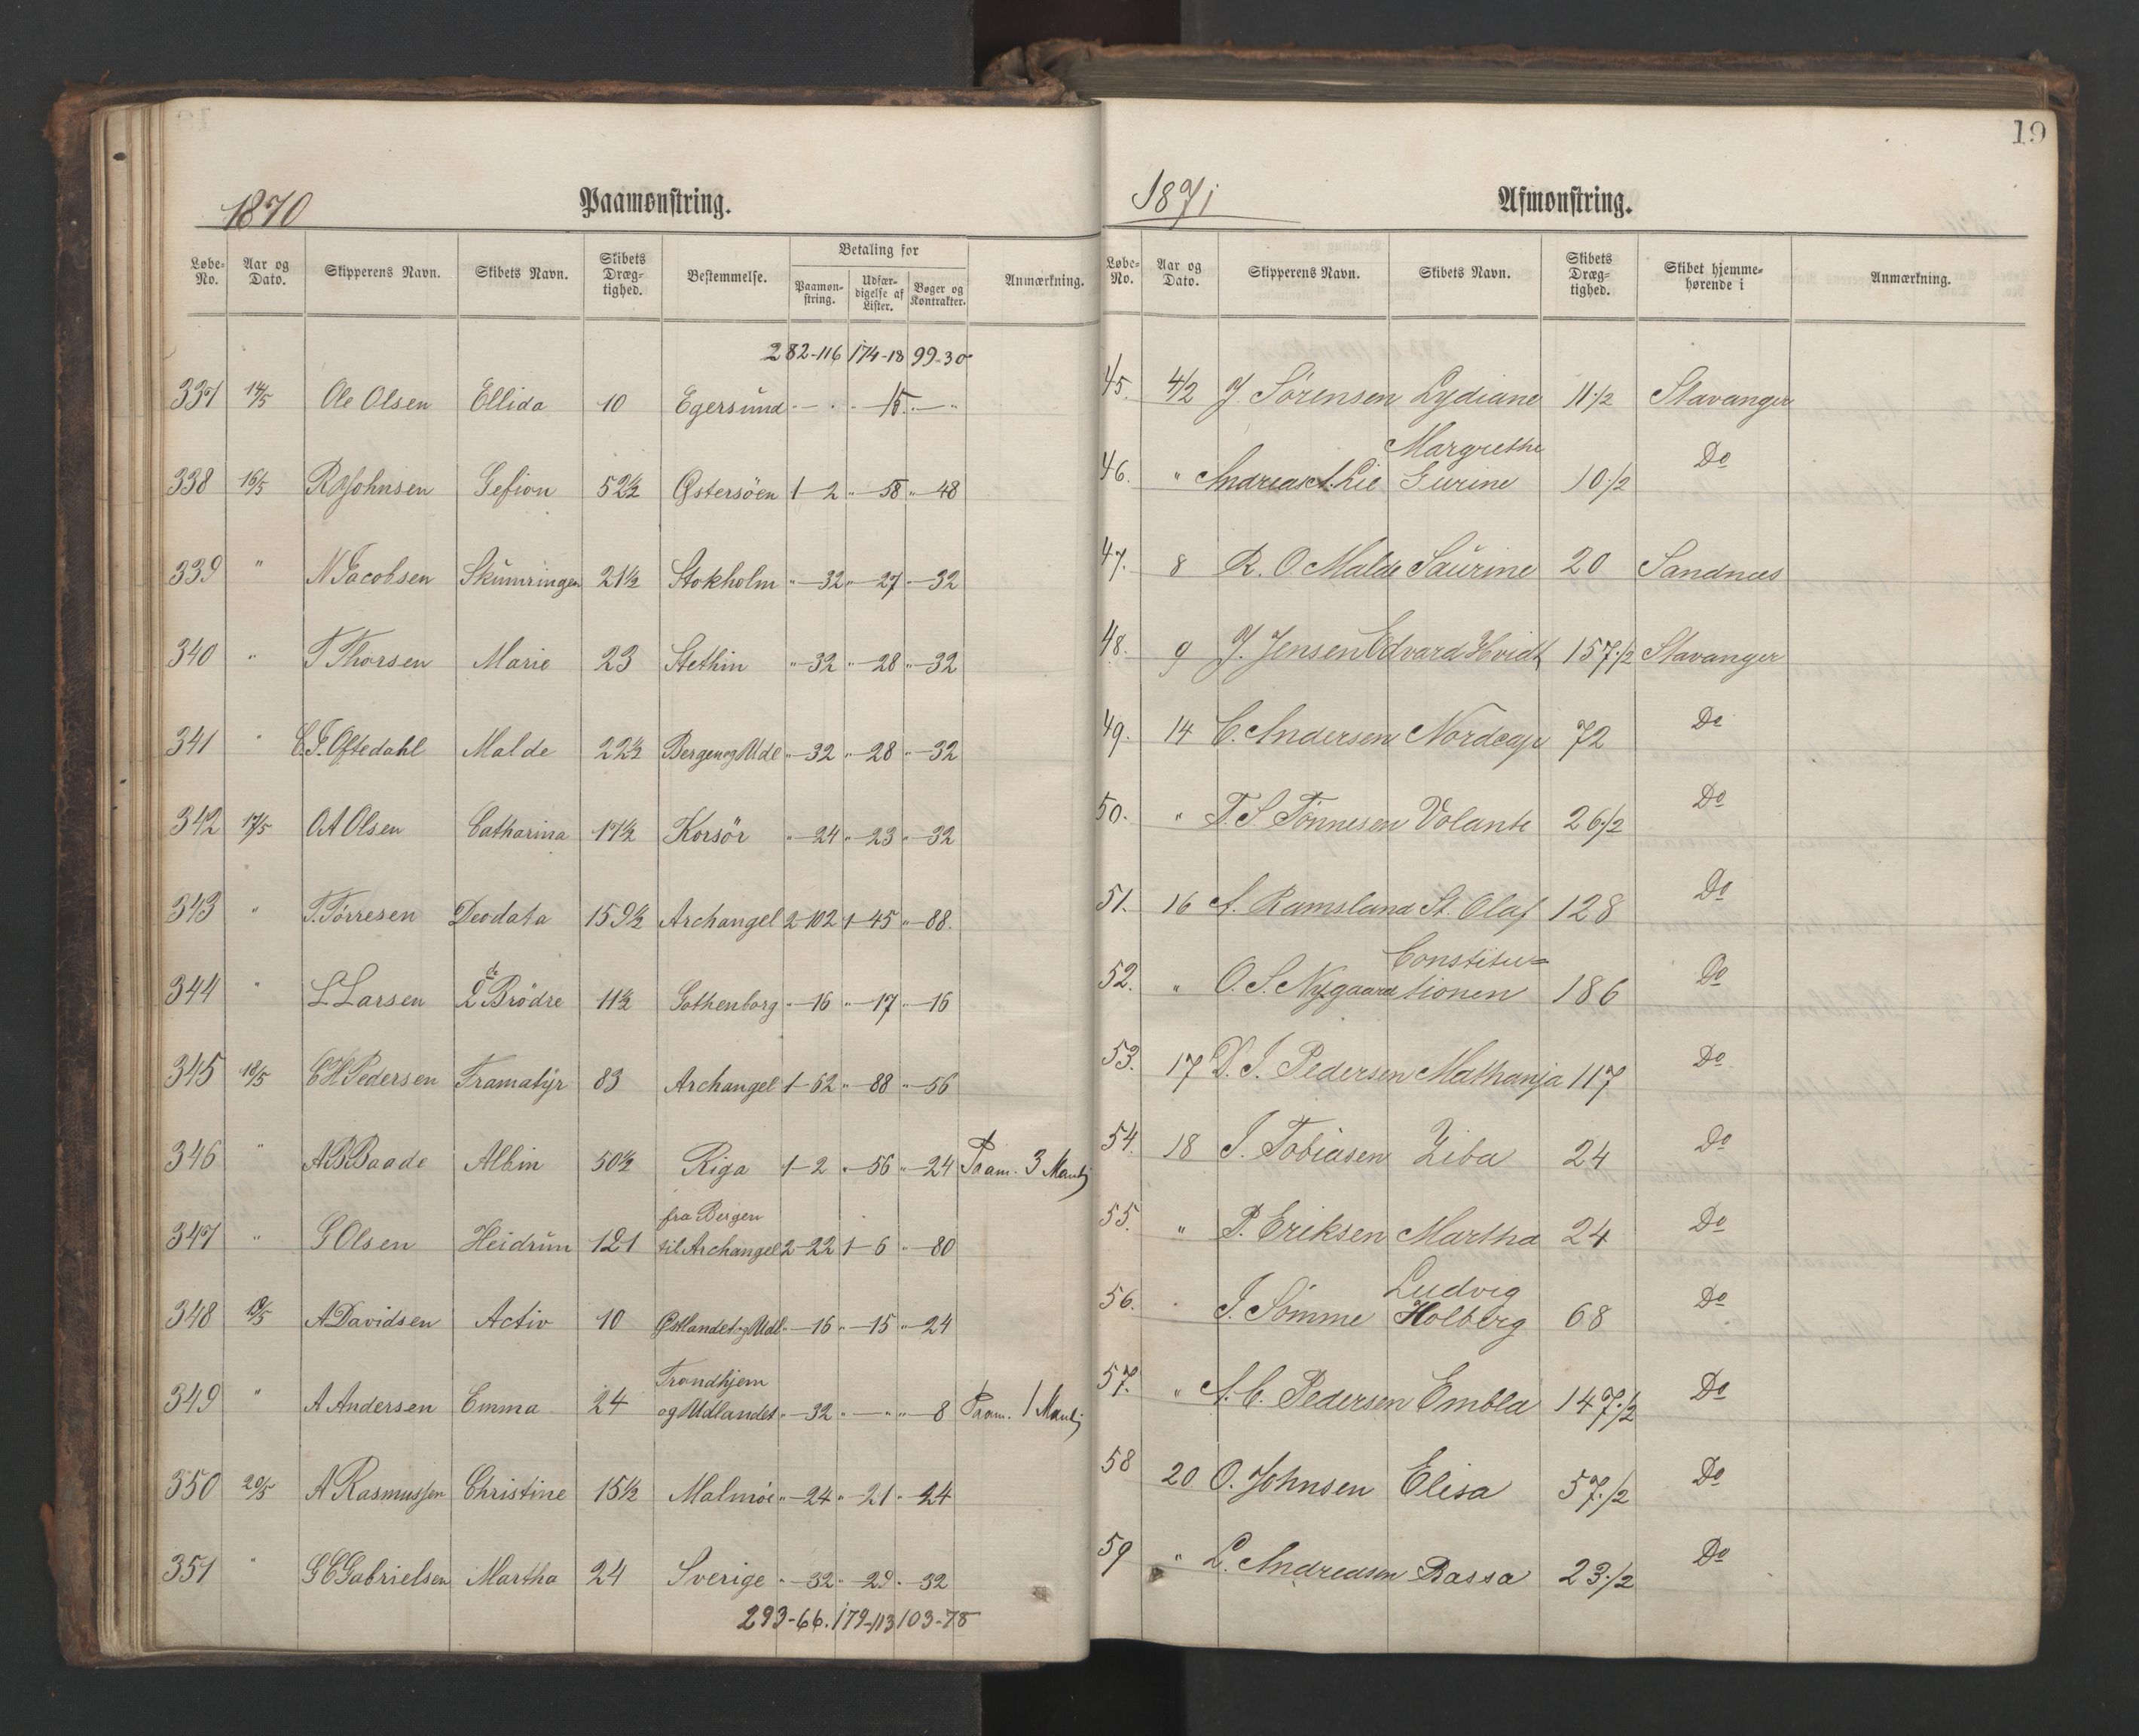 1870 Paamønstring.
Løbe-No. Aar og Dato. Skipperens Navn. Skibets Navn. Skibets Dræg-tighed. Bestemmelse. Betaling for Paamøn-string. Udfær-digelse af Lister. Bøger og Kontrakter. Anmærkning.
282-116 174-18 99-30
337 14/5 Ole Olsen Ellida 10 Egersund " — " " —15 " — "
338 16/5 Johnsen Gefion 52½ Østersöen 1—2 " —58 " —48
339 " N Jacobsen Skumringen 21½ Stokholm " —32 " —27 " —32
340 " T Thorsen Marie 23 Stethin " —32 " —28 " —32
341 " E. T. Oftedahl Malde 22½ Bergen og Udl " —32 " —28 " —32
342 17/5 O A Olsen Catharina 17½ Korsör " —24 " —23 " —32
343 " T. Törresen Deodata 159½ Archangel 2—102 1—45 " —88.
344 " L Larsen 2de Brödre 11½ Gothenborg " —16 " —17 " —16
345 18/5 C H Pedersen Framatyr 83 Archangel 1—62 " —88 " —56
346 " A B Baade Albin 50½ Riga 1—2 " —56 " —24 Paam. 3 Mand
fra Bergen
347 " G Olsen Heidrun 121 til Archangel 2—22 1—6 " —80
348 19/5 A Davidsen Activ 10 Østlandet og Udl " —16 " —15 " —24
Trondhjem
349 " A Andersen Emma 24 og Udlandet " —32 " — " " —8 Paam. 1 Mand
350 20/5 A Rasmussen Christine 15½ Malmöe " —24 " —21 " —24
351 " G C Gabrielsen Martha 24 Sverige " —32 " —29 " —32
293-66. 179-113 103-78
19
1871 Afmønstring.
Løbe-No. Aar og Dato. Skipperens Navn. Skibets Navn. Skibets Dræg-tighed. Skibet hjemme-hørende i Anmærkning.
45. 4/2 J. Sörensen Lydiane 11½ Stavanger
Margrethe
46. " Andreas A. Lie Gurine 10½ Do
47. 8 R. O. Malde Saurine 20 Sandnæs
48. 9 J. Jensen Edvard Hvidt 157½ Stavanger
49. 14 C. Andersen Nordcap 72 Do
50. " T. S. Tönnesen Volante 26½ Do
51. 16 A. Ramsland St. Olaf 128 Do
Constitu=
52. " O. S. Nygaard tionen 186 Do
53. 17 D. J. Pedersen Mathanja 117 Do
54. 18 J. Tobiasen Ziba 24 Do
55. " P. Eriksen Martha 24 Do
Ludvig
56. " J. Sömme Holberg 68 Do
57. " A. C. Pedersen Embla 147½ Do
58 20 O. Johnsen Elisa 57½ Do
59 " L. Andreasen Bassa 23½ Do